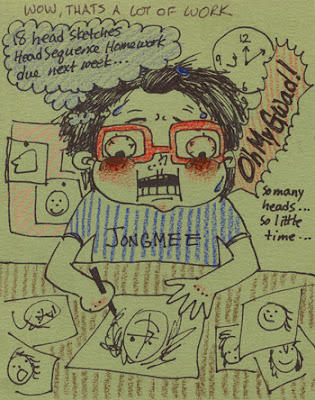 WOW, THATS A LOT OF WORK
18 head sketches
Head Sequence Homework
due next week...
12
9
Oh My Gwad!
so many
heads...
so little
time...
JONGMEE